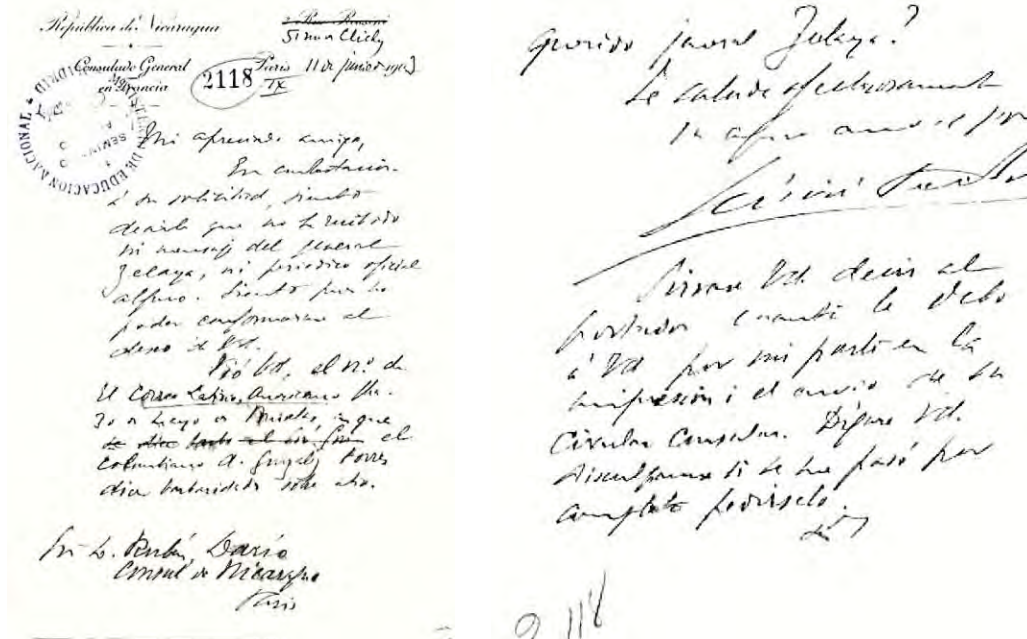 República de Nicaragua
Consulado General
en Francia
51 rue Clichy
2118
IX
Paris 11 de junio de 1903
EDUCACION NACIONAL
Mi apreciado amigo,
En contestación
á su solicitud, siento
decirle que no he recibido
ni mensaje del general
Zelaya, ni periódico oficial
alguno. Siento pues no
poder conformarme al
deseo de Vd.
Vió Vd. el nº. de
El Correo Latino-Americano
30 de Mayo de Bruselas, en que
el
Colombiano A. González Torres
dice barbaridades
Sr. D. Rubén Darío
Consul de Nicaragua
Paris
Querido Zelaya?
Le saluda afectuosamente
su afmo
Sírvase Vd. decir al
portador cuanto le debo
á Vd por mi parte en la
impresión i el envío de su
Circular Consular. Vd.
si se me pasó por
completo pedírselo.
2118